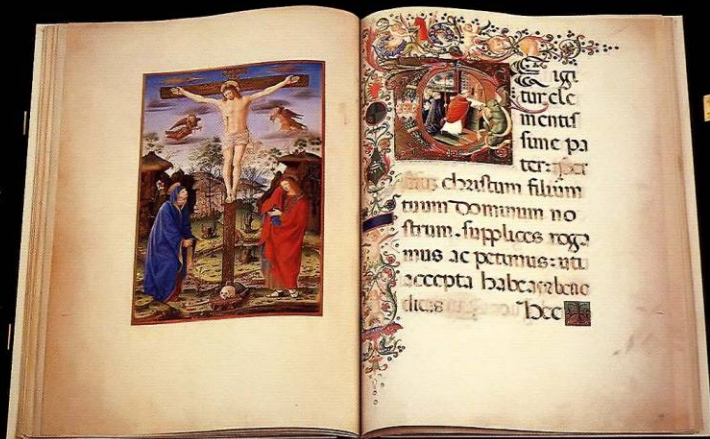 Te igi
tur cle
mentis
sime pa
ter:
christum filium
tuum Dominum no
strum. supplices roga
mus ac petimus: uti
accepta habeas et bene
dicas hec